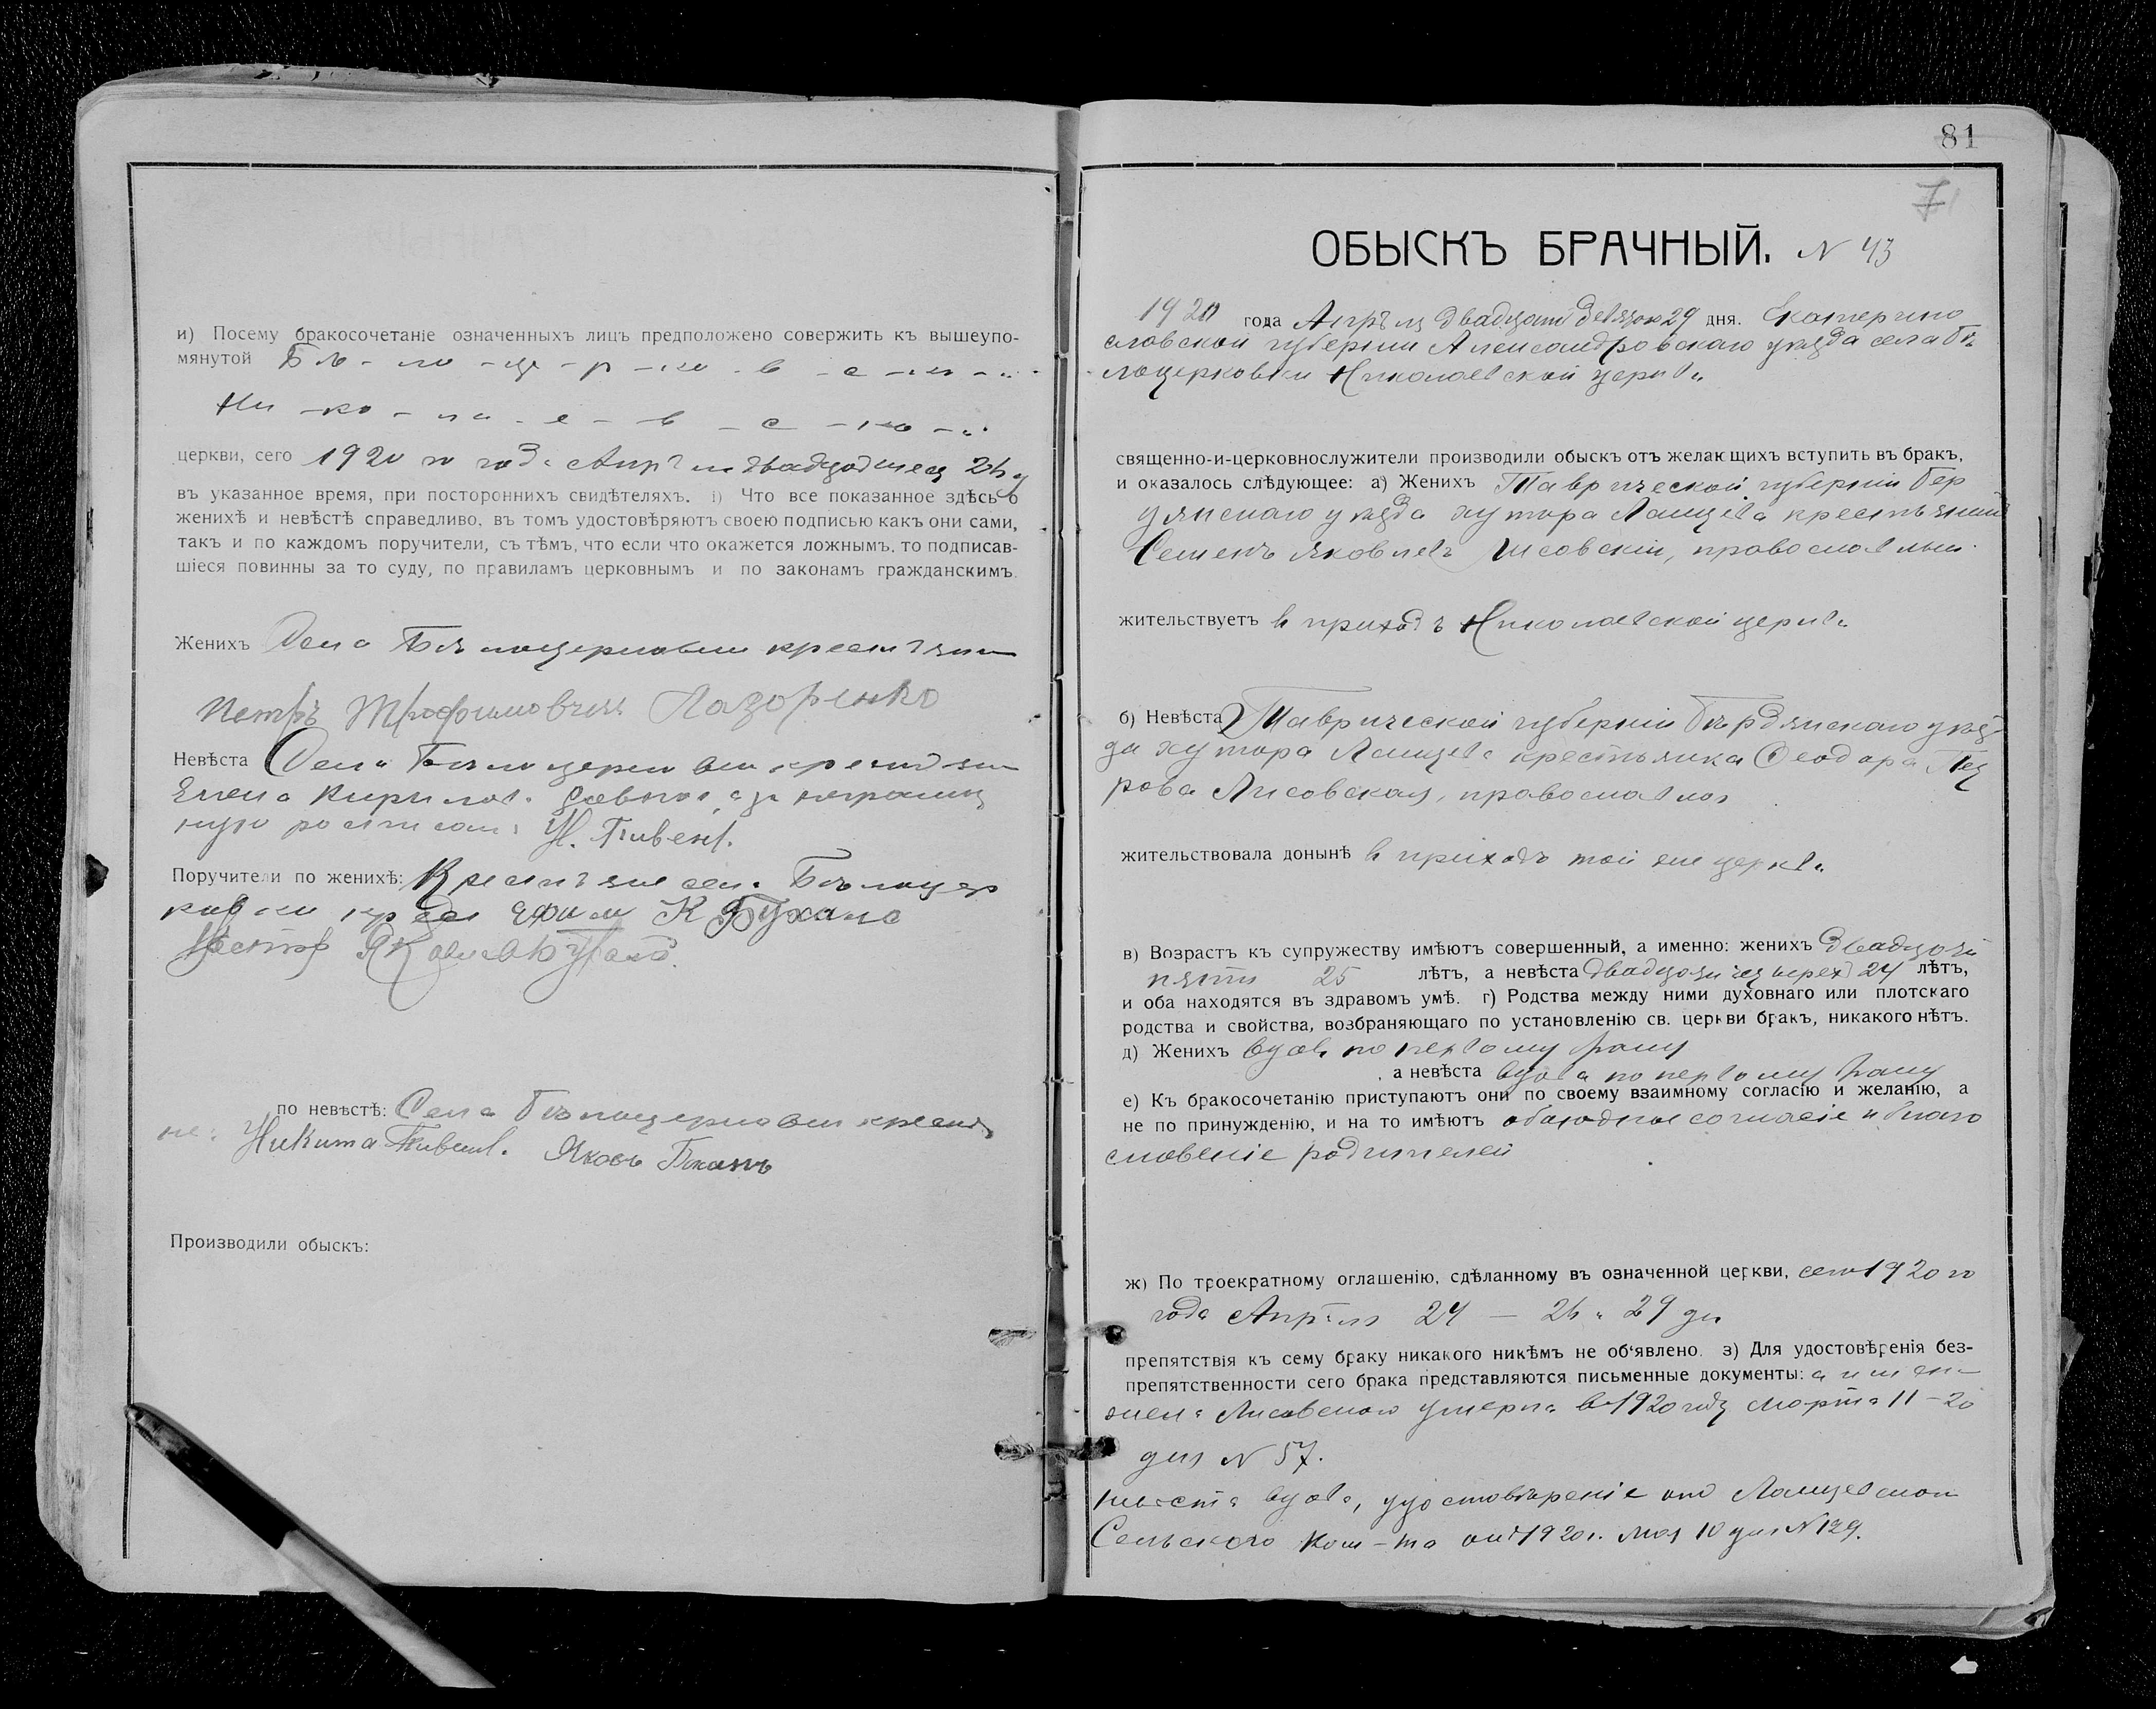 и) Посему бракосочетаніе означенныхъ лицъ предположено совержить къ вышеупо-
мянутой Бѣ - ло - це - р - ко - в - с - ко - й
Ни - ко - ла - е - в - с - ко - й
церкви, сего 1920 го года Апрѣля
въ указанное время, при постороннихъ свидѣтеляхъ. і) Что все показанное здѣсь о
женихѣ и невѣстѣ справедливо, въ томъ удостовѣряютъ своею подписью какъ они сами,
такъ и по каждомъ поручители, съ тѣмъ, что если что окажется ложнымъ, то подписав-
шіеся повинны за то суду, по правиламъ церковнымъ и по законамъ гражданскимъ.
Женихъ Села Бѣлоцерковки
Петръ Трофимовичъ Лазоренко
Невѣста Села Бѣлоцерковки
Елена Кирилова
Н. Пивень.
Поручители по женихѣ: Крестьяне села Бѣлоцер
ковки Ефим К Бухало
Нестор
по невѣстѣ: Села Бѣлоцерковки крестья
не: Никита Пивень. Яковъ
Производили обыскъ:
81
7
ОБЫСКЪ БРАЧНЫЙ. N 43
1920 года Апрѣля двадцать девятого 29 дня. Екатерино
славской губерніи Александровскаго уѣзда села Бѣ
лоцерковки Николаевской церкви
священно-и-церковнослужители производили обыскъ отъ желающихъ вступить въ бракъ,
и оказалось слѣдующее: а) Женихъ Таврической губерніи Бер
дянскаго уѣзда хутора Ланцева крестьянин
Семенъ Яковлевъ Лисовскій, православный
жительствуетъ в приходѣ Николаевской церкви
б) Невѣста Таврической губерніи Бердянскаго уѣз
да хутора Ланцева крестьянка Феодора Пет
рова Лисовская, православная
жительствовала донынѣ в приходѣ той же церкви
в) Возрастъ къ супружеству имѣютъ совершенный, а именно: женихъ двадцати
пяти 25 лѣтъ, а невѣста двадцати четырех 24 лѣтъ,
и оба находятся въ здравомъ умѣ. г) Родства между ними духовнаго или плотскаго
родства и свойства, возбраняющаго по установленію св. церкви бракъ, никакого нѣтъ.
д) Женихъ вдовъ по первому браку
, а невѣста вдова по первому браку
е) Къ бракосочетанію приступаютъ они по своему взаимному согласію и желанію, а
не по принужденію, и на то имѣютъ обоюдное согласіе и благо
словеніе родителей
ж) По троекратному оглашенію, сдѣланному въ означенной церкви, сего 1920 го
года Апрѣля 24 — 26 и 29 дн
препятствія къ сему браку никакого никѣмъ не об'явлено. з) Для удостовѣренія без-
препятственности сего брака представляются письменные документы:
жена Лисовского умерла в 1920 году Марта 11-го
дня N 57.
невѣста вдова, удостовѣреніе от Ланцевскаго
Сельского Ком-та от 1920 г. Мая 10 дня N 129.